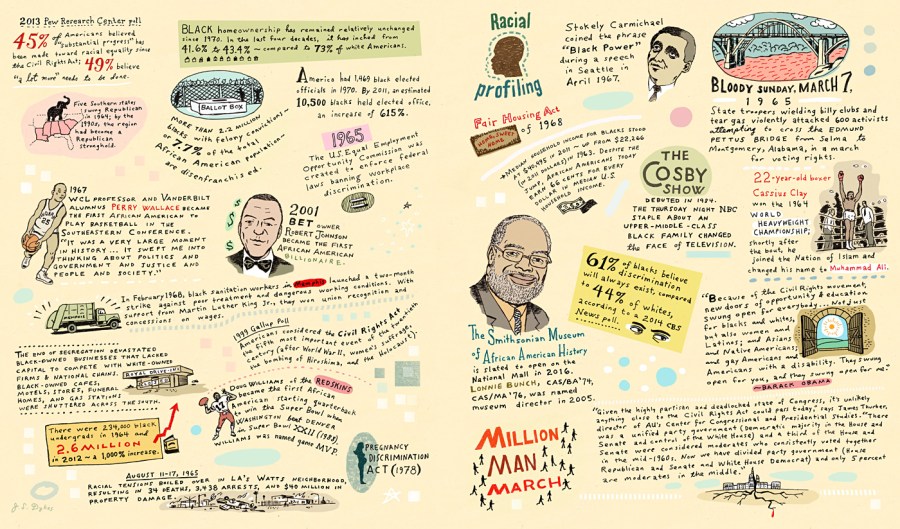 2013 Pew Research Center poll
45% of Americans believed
"substantial progress" has
been made toward racial equality since
the Civil Rights Act; 49% believe
"a lot more" needs to be done.
BLACK homeownership has remained relatively unchanged
since 1970. In the last four decades, it has inched from
41.6% to 43.4% – compared to 73% of white Americans.
Five Southern states
swung Republican
in 1964; by the
1990s, the region
had become a
Republican
stronghold.
BALLOT BOX
MORE THAN 2.2 MILLION
blacks with felony convictions –
or 7.7% of the total
African American population –
are disenfranchised.
America had 1,469 black elected
officials in 1970. By 2011, an estimated
10,500 blacks held elected office,
an increase of 615%.
1965
The U.S. Equal Employment
Opportunity Commission was
created to enforce federal
laws banning workplace
discrimination.
25
1967
WCL PROFESSOR AND VANDERBILT
ALUMNUS PERRY WALLACE BECAME
THE FIRST AFRICAN AMERICAN TO
PLAY BASKETBALL IN THE
SOUTHEASTERN CONFERENCE.
"IT WAS A VERY LARGE MOMENT
IN HISTORY... IT SWEPT ME INTO
THINKING ABOUT POLITICS AND
GOVERNMENT AND JUSTICE AND
PEOPLE AND SOCIETY."
$
$
$
2001
BET OWNER
ROBERT JOHNSON
BECAME THE FIRST
AFRICAN AMERICAN
BILLIONAIRE.
MEMPHIS
In February 1968, black sanitation workers in Memphis launched a two-month
strike against poor treatment and dangerous working conditions. With
support from Martin Luther King Jr., they won union recognition and
concessions on wages.
THE END OF SEGREGATION DEVASTATED
BLACK-OWNED BUSINESSES THAT LACKED
CAPITAL TO COMPETE WITH WHITE-OWNED
FIRMS & NATIONAL CHAINS.
BLACK-OWNED CAFES,
MOTELS, STORES, FUNERAL
HOMES, AND GAS STATIONS
WERE SHUTTERED ACROSS THE SOUTH.
ROYAL DRIVE-IN
1999 Gallup Poll
Americans considered the Civil Rights Act
the fifth most important event of the twentieth
century (after World War II, women's suffrage,
the bombing of Hiroshima, and the Holocaust).
There were 234,000 black
undergrads in 1964 and
2.6 MILLION
in 2012 – a 1,000% increase.
DOUG WILLIAMS of the REDSKINS
became the first African
American starting quarterback
to win the Super Bowl when
WASHINGTON beat DENVER
in Super Bowl XXII (1988).
WILLIAMS was named game MVP.
PREGNANCY
DISCRIMINATION
ACT (1978)
AUGUST 11-17, 1965
RACIAL TENSIONS BOILED OVER IN LA'S WATTS NEIGHBORHOOD,
RESULTING IN 34 DEATHS, 3,438 ARRESTS, AND $40 MILLION IN
PROPERTY DAMAGE.
Racial
profiling
Stokely Carmichael
coined the phrase
"Black Power"
during a speech
in Seattle in
April 1967.
BLOODY SUNDAY, MARCH 7,
1965
State troopers wielding billy clubs and
tear gas violently attacked 600 activists
attempting to cross the EDMUND
PETTUS BRIDGE from Selma to
Montgomery, Alabama, in a march
for voting rights.
Fair Housing Act
of 1968
HOME SWEET HOME
MEDIAN HOUSEHOLD INCOME FOR BLACKS STOOD
AT $40,495 IN 2011 – UP FROM $22,266
(IN 2011 DOLLARS) IN 1963. DESPITE THE
JUMP, AFRICAN AMERICANS TODAY
EARN 66 CENTS FOR EVERY
DOLLAR IN MEDIAN U.S.
HOUSEHOLD INCOME.
THE
COSBY
SHOW
DEBUTED IN 1984.
THE THURSDAY NIGHT NBC
STAPLE ABOUT AN
UPPER-MIDDLE-CLASS
BLACK FAMILY CHANGED
the FACE of TELEVISION.
22-year-old boxer
Cassius Clay
won the 1964
WORLD
HEAVYWEIGHT
CHAMPIONSHIP;
shortly after
the bout, he
joined the Nation of Islam and
changed his name to Muhammad Ali.
61% of blacks believe
discrimination
will always exist compared
to 44% of whites,
according to a 2014 CBS
News poll.
The Smithsonian Museum
of African American History
is slated to open on the
National Mall in 2016.
LONNIE BUNCH, CAS/BA'74,
CAS/MA'76, was named
museum director in 2005.
"Because of the Civil Rights movement,
new doors of opportunity & education
swung open for everybody... Not just
for blacks and whites,
but also women and
Latinos; and Asians
and Native Americans;
and gay Americans and
Americans with a disability. They swung
open for you, and they swung open for me."
–BARACK OBAMA
MILLION
MAN
MARCH
"Given the highly partisan and deadlocked state of Congress, it's unlikely
anything close to the Civil Rights Act could pass today," says James Thurber,
director of AU's Center for Congressional and Presidential Studies. "There
was a unified party government (Democratic majority in the House and
Senate and control of the White House) and a third of the House and
Senate were considered moderates who consistently voted together
in the mid-1960s. Now we have divided party government (House
Republican and Senate and White House Democrat) and only 5 percent
are moderates in the middle."